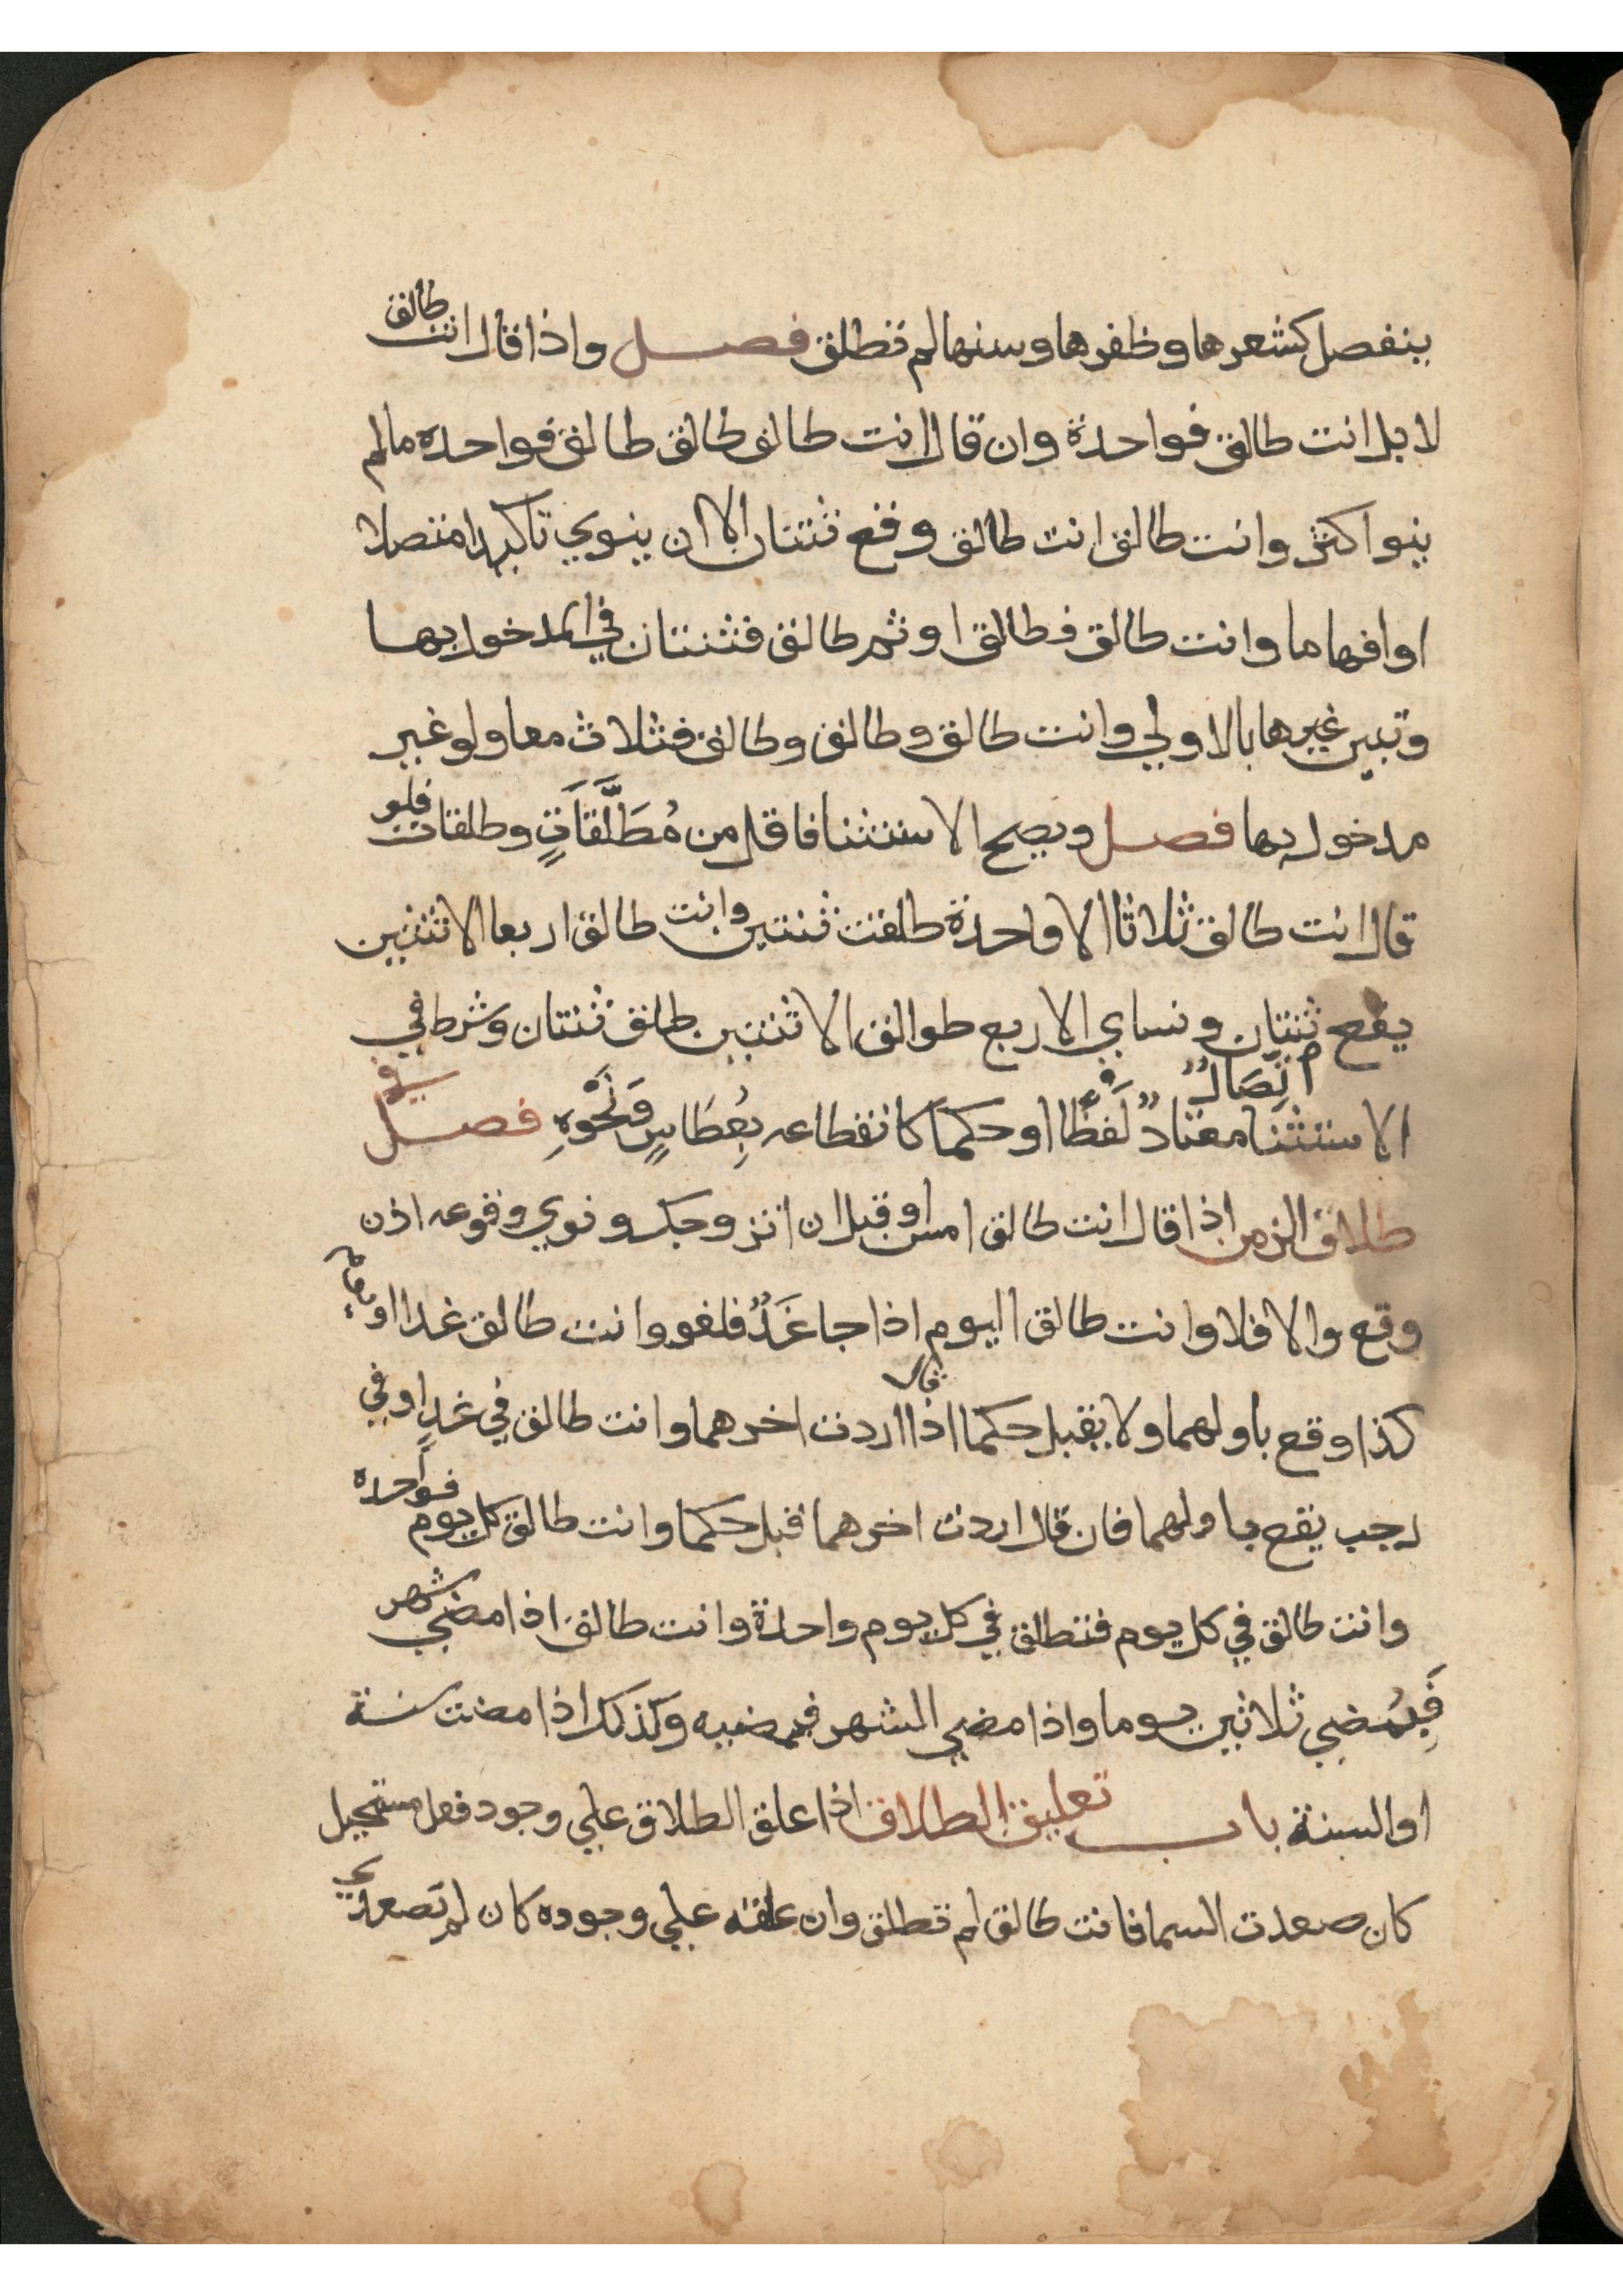 ينفصل كشعرها وظفرها وسنها لم تطلق فصل واذا قال انت طالق
لا بل انت طالق فواحدة وان قال انت طالق طالق طالق فواحده ما لم
ينو اكثر وانت طالق انت طالق وقع ثنتان الا ان ينوي تاكيدا متصلا
او افهاما وانت طالق فطالق او ثم طالق فثنتان في المدخول بها
وتبين غيرها بالاولي وانت طالق وطالق وطالق فثلاث معا ولو غير
مدخول بها فصل ويصح الاستثنا فاقل من مُطَلَّقَاتٍ وطلقات فلو
قال انت طالق ثلاثا الا واحدة طلقت ثنتين وانت طالق اربعا الا ثنتين
يقع ثنتان ونساي الاربع طوالق الا ثنتين طلق ثنتان وشرط في
الاستثنا اتِّصَالٌ معتادٌ لَفظًا او حكما كانقطاعه بِعُطَاسٍ وَنَحْوِهِ فصل في
طلاق الزمن اذا قال انت طالق امس او قبل ان اتزوجك ونوي وقوعه اذن
وقع والا فلا وانت طالق اليوم اذا جا غَدٌ فلغو وانت طالق غدا او يوم
كذا وقع باولهما ولا يقبل حكما اذا قال اردت اخرهما وانت طالق في غدٍ او في
رجب يقع باولهما فان قال اردت اخرهما قبل حكما وانت طالق كل يوم فواحده
وانت طالق في كل يوم فتطلق في كل يوم واحدة وانت طالق اذا مضي شهر
فَبِمُضِي ثلاثين يوما واذا مضي الشهر فبمضيه وكذلك اذا مضت سنة
او السنة باب تعليق الطلاق اذا علق الطلاق علي وجود فعل مستحيل
كان صعدت السما فانت طالق لم تطلق وان علقه علي وجوده كان لم تصعدي